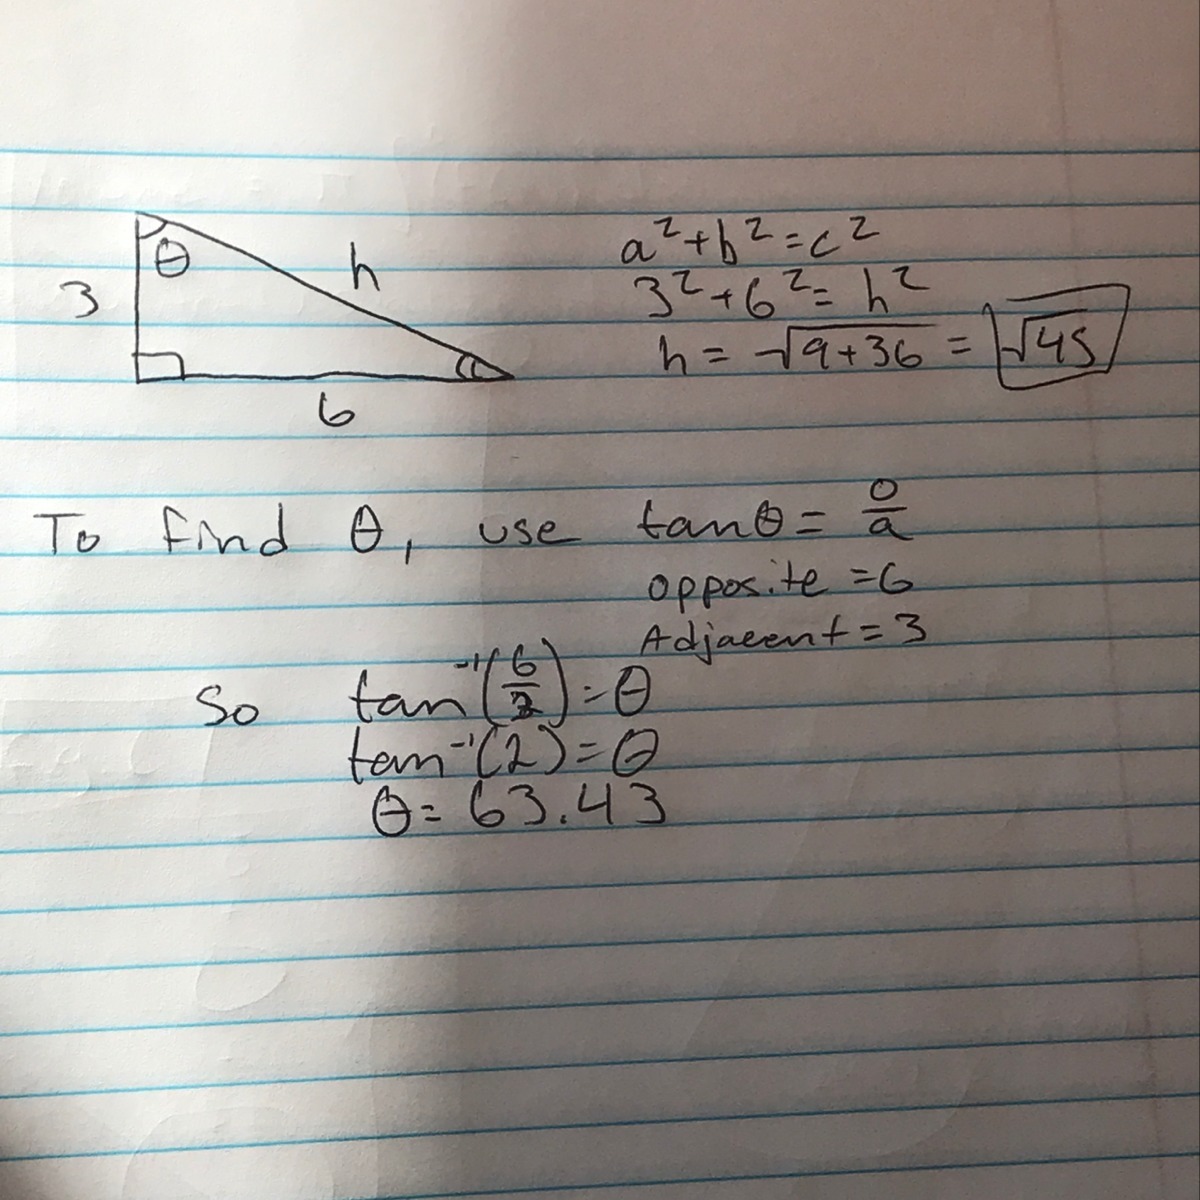 3
θ
h
6
a²+b²=c²
3²+6²=h²
h = √9+36 = √45
To find θ, use tanθ = o/a
opposite = 6
Adjacent = 3
So tan⁻¹(6/3)=θ
tan⁻¹(2)=θ
θ= 63.43